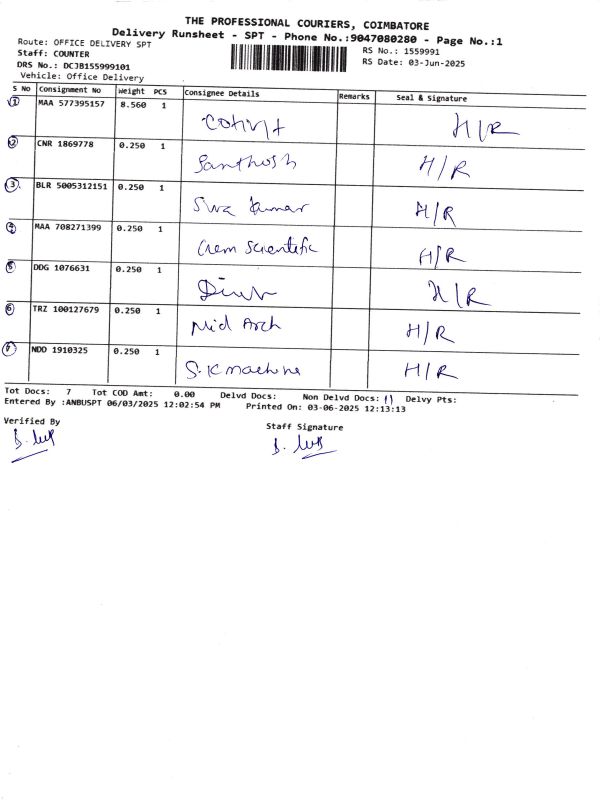 THE PROFESSIONAL COURIERS, COIMBATORE
Delivery Runsheet - SPT - Phone No.:9047080280 - Page No.:1
Route: OFFICE DELIVERY SPT
Staff: COUNTER
DRS No.: DCJB155999101
Vehicle: Office Delivery
RS No.: 1559991
RS Date: 03-Jun-2025
S No Consignment No Weight PCS Consignee Details Remarks Seal & Signature
1 MAA 577395157 8.560 1 H/R
2 CNR 1869778 0.250 1 Santhosh H/R
3 BLR 5005312151 0.250 1 Siva Kumar H/R
4 MAA 708271399 0.250 1 Chem Scientific H/R
5 DDG 1076631 0.250 1 H/R
6 TRZ 100127679 0.250 1 Mid Arch H/R
7 NDD 1910325 0.250 1 S.K machine H/R
Tot Docs: 7 Tot COD Amt: 0.00 Delvd Docs: Non Delvd Docs: Delvy Pts:
Entered By :ANBUSPT 06/03/2025 12:02:54 PM Printed On: 03-06-2025 12:13:13
Verified By
Staff Signature